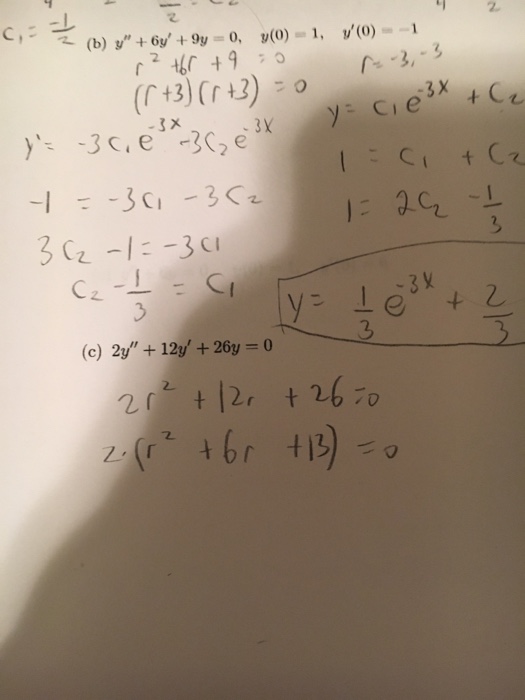 c₁ = -1/2
(b) y″ + 6y′ + 9y = 0, y(0) = 1, y′(0) = −1
r² + 6r + 9 = 0
r = -3, -3
(r+3)(r+3) = 0
y = c₁e^-3x + c₂
y' = -3c₁e^-3x - 3c₂e^-3x
1 = c₁ + c₂
-1 = -3c₁ - 3c₂
1 = 2c₂ - 1/3
3c₂ - 1 = -3c₁
c₂ - 1/3 = c₁
y = 1/3 e^-3x + 2/3
(c) 2y″ + 12y′ + 26y = 0
2r² + 12r + 26 = 0
2·(r² + 6r + 13) = 0